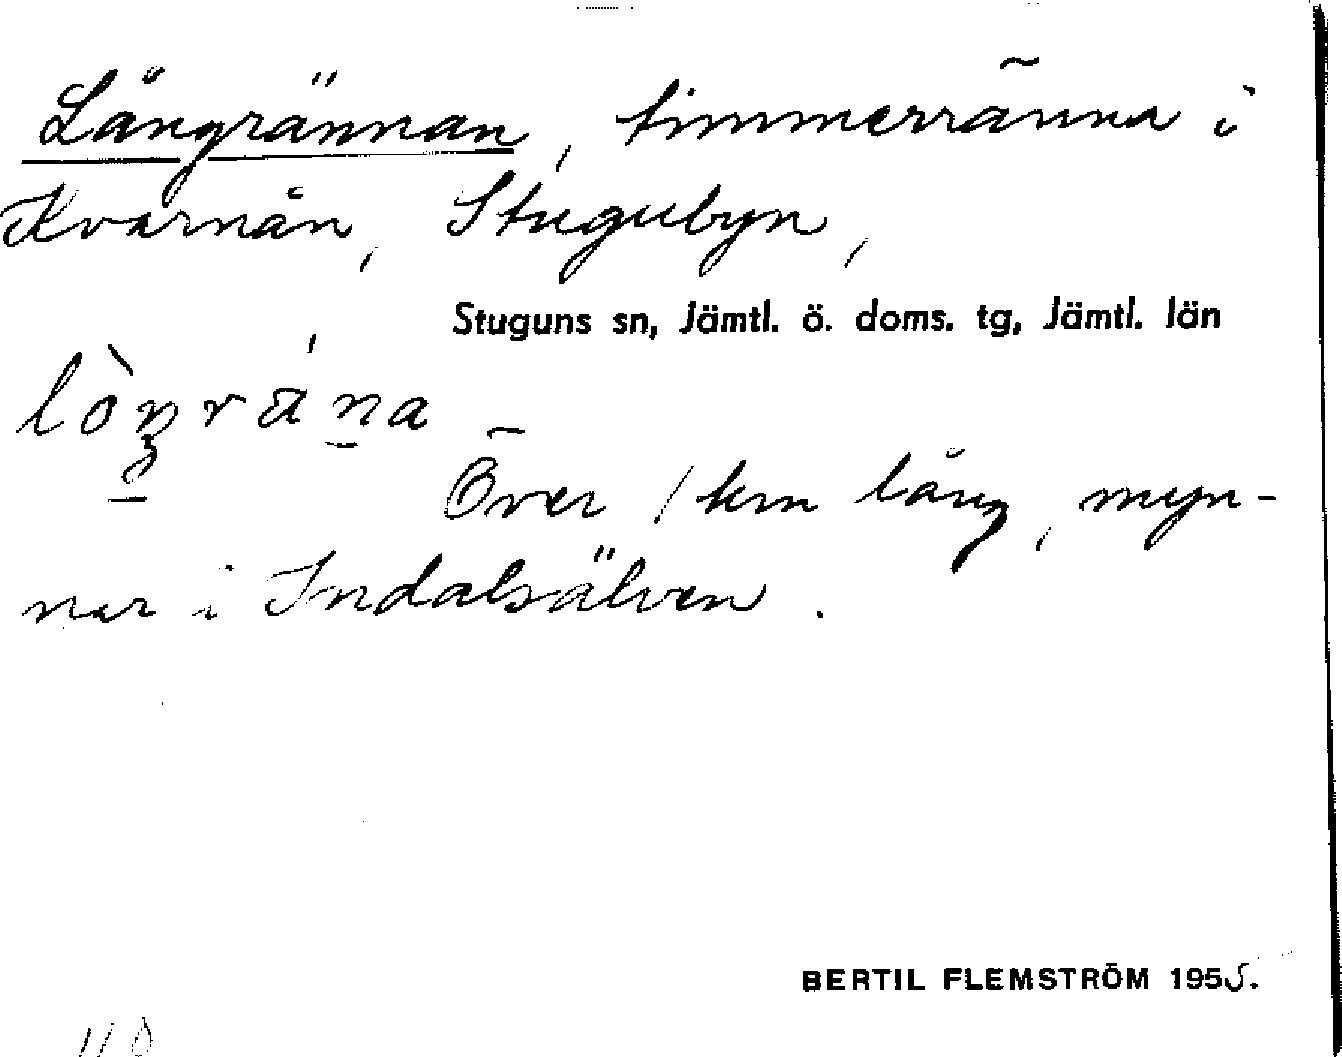 Långrännan, timmerränna i
Kvarnån, Stugubyn,
Stuguns sn, Jämtl. ö. doms. tg, Jämtl. län
Över 1 km lång, myn-
nar i Indalsälven.
BERTIL FLEMSTRÖM 1955.
110